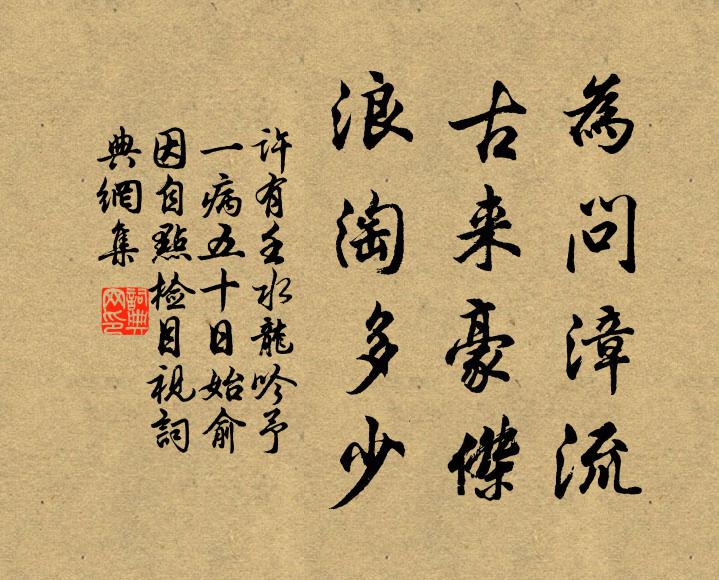 為問漳流
古来豪傑
浪淘多少
许有壬水龍吟予
一病五十日始俞
因自點檢目視詞
典網集
詞典
网印